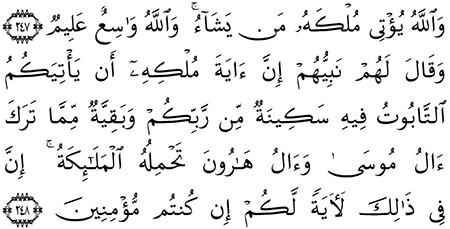 وَٱللَّهُ يُؤْتِى مُلْكَهُۥ مَن يَشَآءُ ۚ وَٱللَّهُ وَٰسِعٌ عَلِيمٌ ٢٤٧
وَقَالَ لَهُمْ نَبِيُّهُمْ إِنَّ ءَايَةَ مُلْكِهِۦٓ أَن يَأْتِيَكُمُ
ٱلتَّابُوتُ فِيهِ سَكِينَةٌ مِّن رَّبِّكُمْ وَبَقِيَّةٌ مِّمَّا تَرَكَ
ءَالُ مُوسَىٰ وَءَالُ هَٰرُونَ تَحْمِلُهُ ٱلْمَلَٰٓئِكَةُ ۚ إِنَّ
فِى ذَٰلِكَ لَءَايَةً لَّكُمْ إِن كُنتُم مُّؤْمِنِينَ ٢٤٨